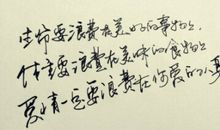 生命要浪费在美好的事物上
体重要浪费在美味的食物上
爱情一定要浪费在你爱的人身